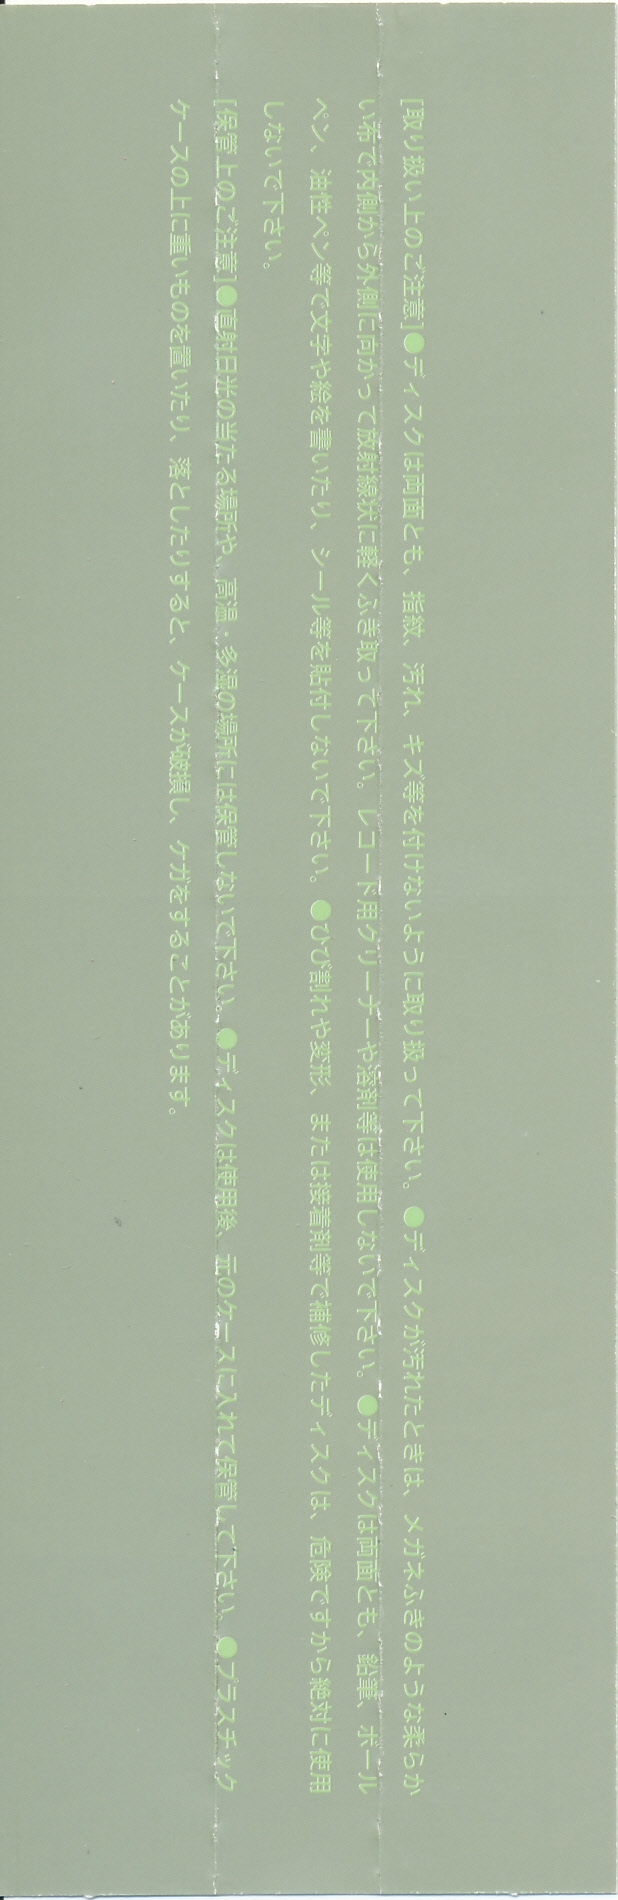 [取り扱い上のご注意]●ディスクは両面とも、指紋、汚れ、キズ等を付けないように取り扱って下さい。●ディスクが汚れたときは、メガネふきのような柔らか
い布で内側から外側に向かって放射線状に軽くふき取って下さい。レコード用クリーナーや溶剤等は使用しないで下さい。●ディスクは両面とも、鉛筆、ボール
ペン、油性ペン等で文字や絵を書いたり、シール等を貼付しないで下さい。●ひび割れや変形、または接着剤等で補修したディスクは、危険ですから絶対に使用
しないで下さい。
[保管上のご注意]●直射日光の当たる場所や、高温・多湿の場所には保管しないで下さい。●ディスクは使用後、元のケースに入れて保管して下さい。●プラスチック
ケースの上に重いものを置いたり、落としたりすると、ケースが破損し、ケガをすることがあります。